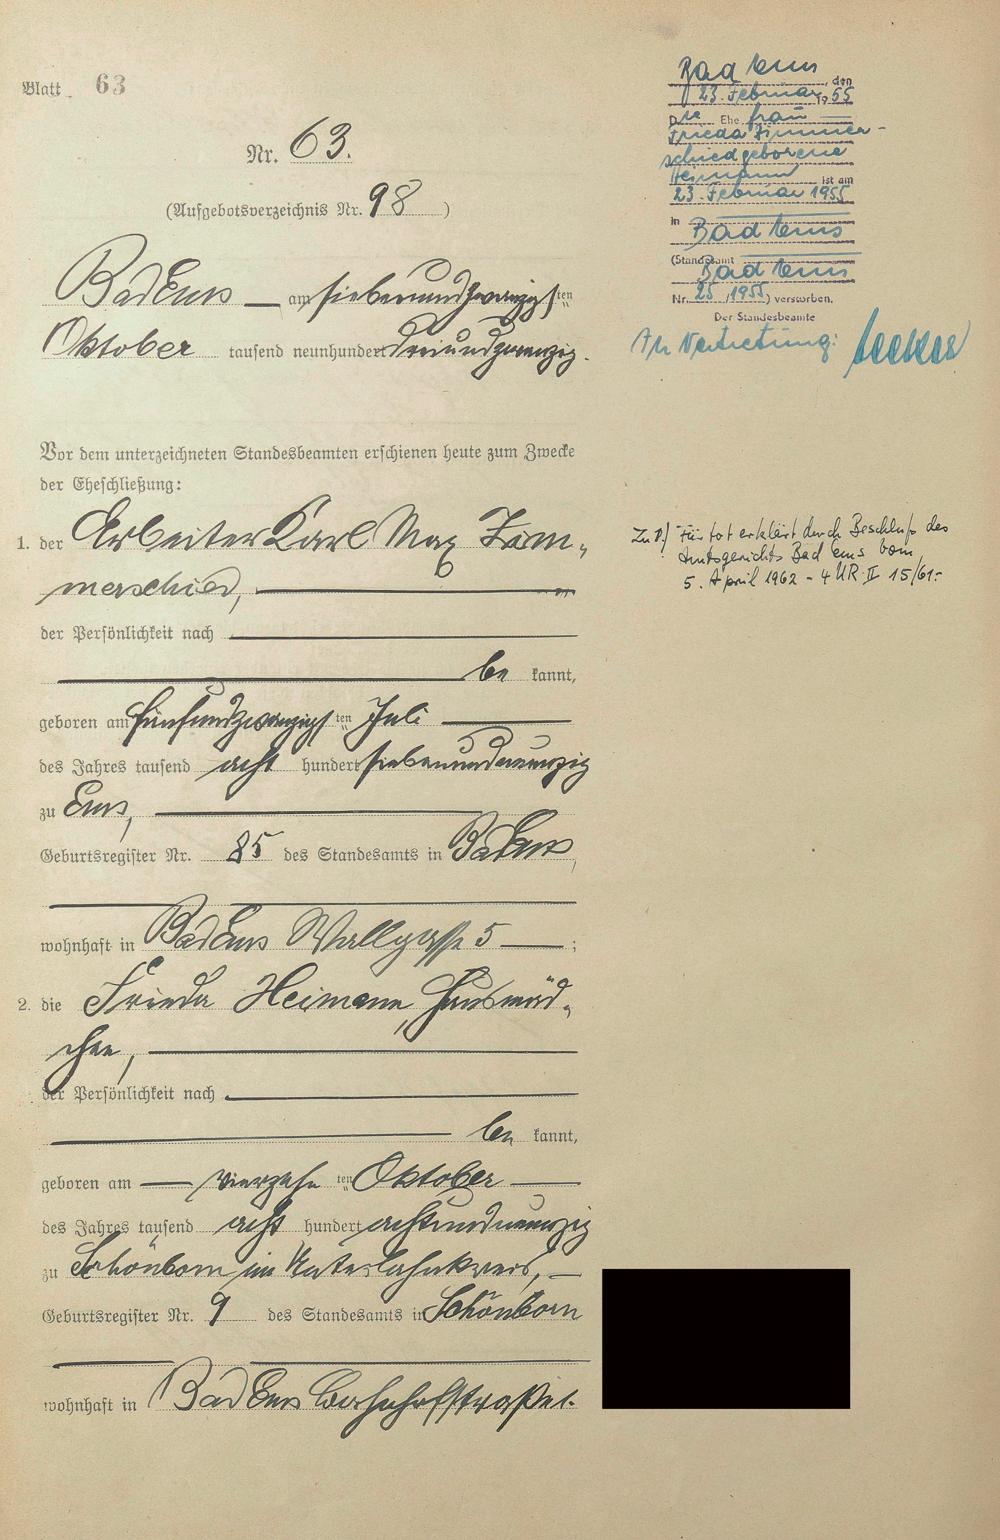 Blatt 63
Nr. 63.
(Aufgebotsverzeichnis Nr. 98)
Bad Ems am siebenundzwanzigsten
Oktober tausend neunhundert dreiundzwanzig.
Vor dem unterzeichneten Standesbeamten erschienen heute zum Zwecke
der Eheschließung:
1. der Arbeiter Karl Max Zim-
merschied,
der Persönlichkeit nach
be kannt,
geboren am fünfundzwanzigsten Juli
des Jahres tausend acht hundert siebenundneunzig
zu Ems,
Geburtsregister Nr. 85 des Standesamts in Bad Ems,
wohnhaft in Bad Ems Wallgasse 5;
2. die Frieda Heimann, Hausmäd-
chen,
der Persönlichkeit nach
be kannt,
geboren am vierzehnten Oktober
des Jahres tausend acht hundert achtundneunzig
zu Schönborn im Unterlahnkreis,
Geburtsregister Nr. 9 des Standesamts in Schönborn
wohnhaft in Bad Ems Bahnhofstraße 1.
Bad Ems, den
23. Februar 1955
Die Ehefrau
Frieda Zimmer-
schied geborene
Heimann ist am
23. Februar 1955
in Bad Ems
(Standesamt
Bad Ems
Nr. 25/1955) verstorben.
Der Standesbeamte
In Vertretung:
Zu 1) Für tot erklärt durch Beschluß des
Amtsgerichts Bad Ems vom
5. April 1962 - 4 UR II 15/61.-